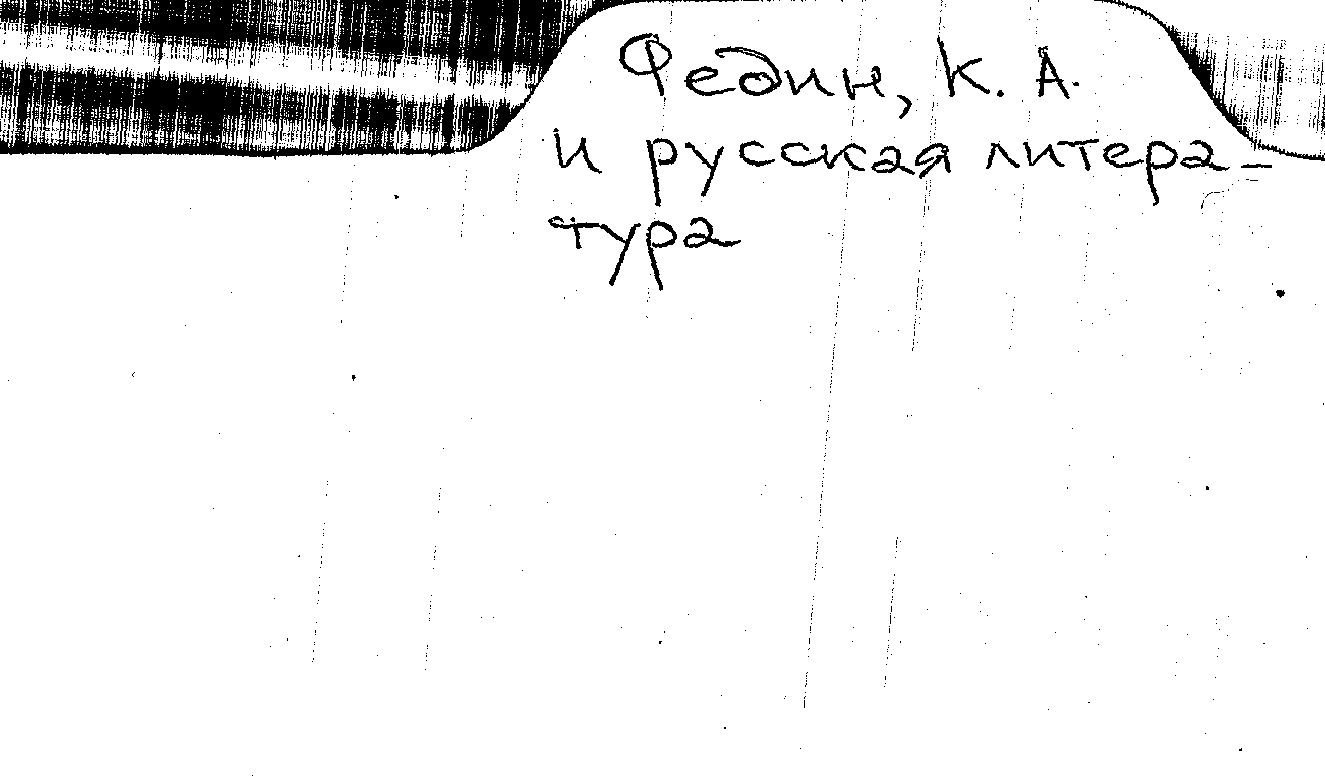 Федин, К. А.
и русская литера-
тура